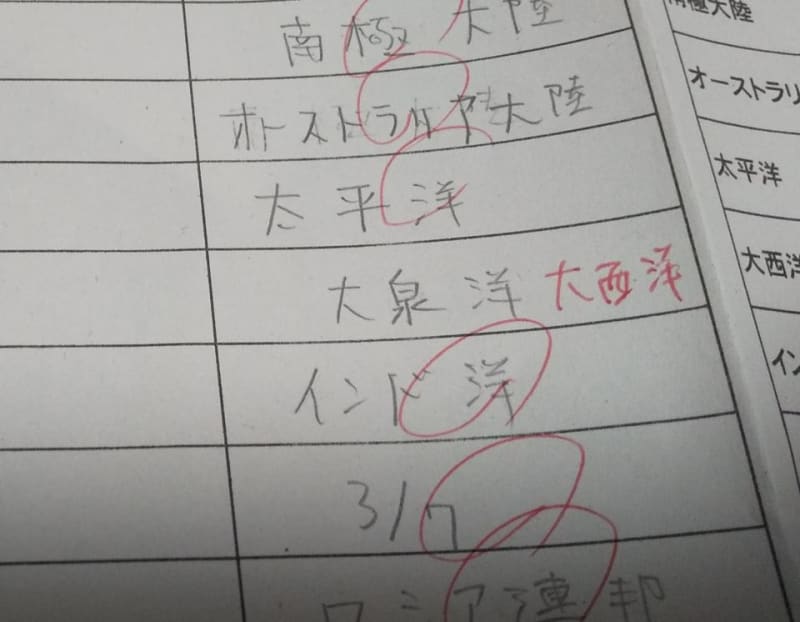 南極大陸
オーストラリア大陸
太平洋
大泉洋 大西洋
インド洋
317
ロシア連邦
南極大陸
オーストラリ
太平洋
大西洋
イン